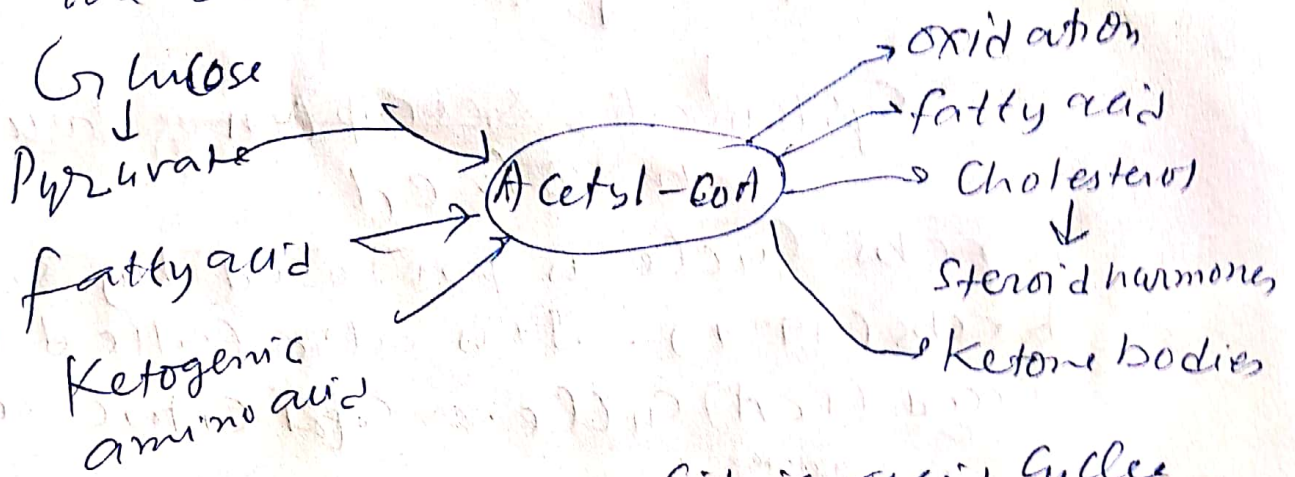 Glucose
↓
Pyruvate
fatty acid
Ketogenic
amino acid
Acetyl-CoA
oxidation
fatty acid
Cholesterol
↓
Steroid hormones
Ketone bodies
acid Cycle